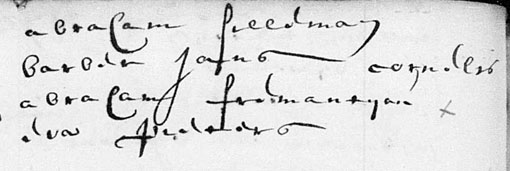 abraham freedman
barber jans cornelis
abraham fredmansen x
eva pieters